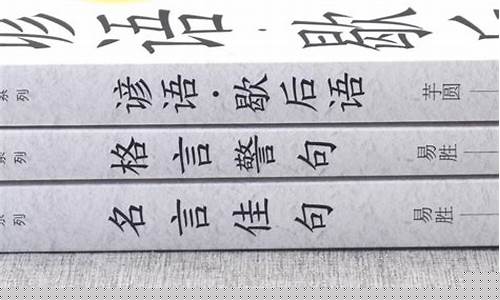 谚语·歇
系列 谚语·歇后语 芋圆
系列 格言警句 易胜
系列 名言佳句 易胜